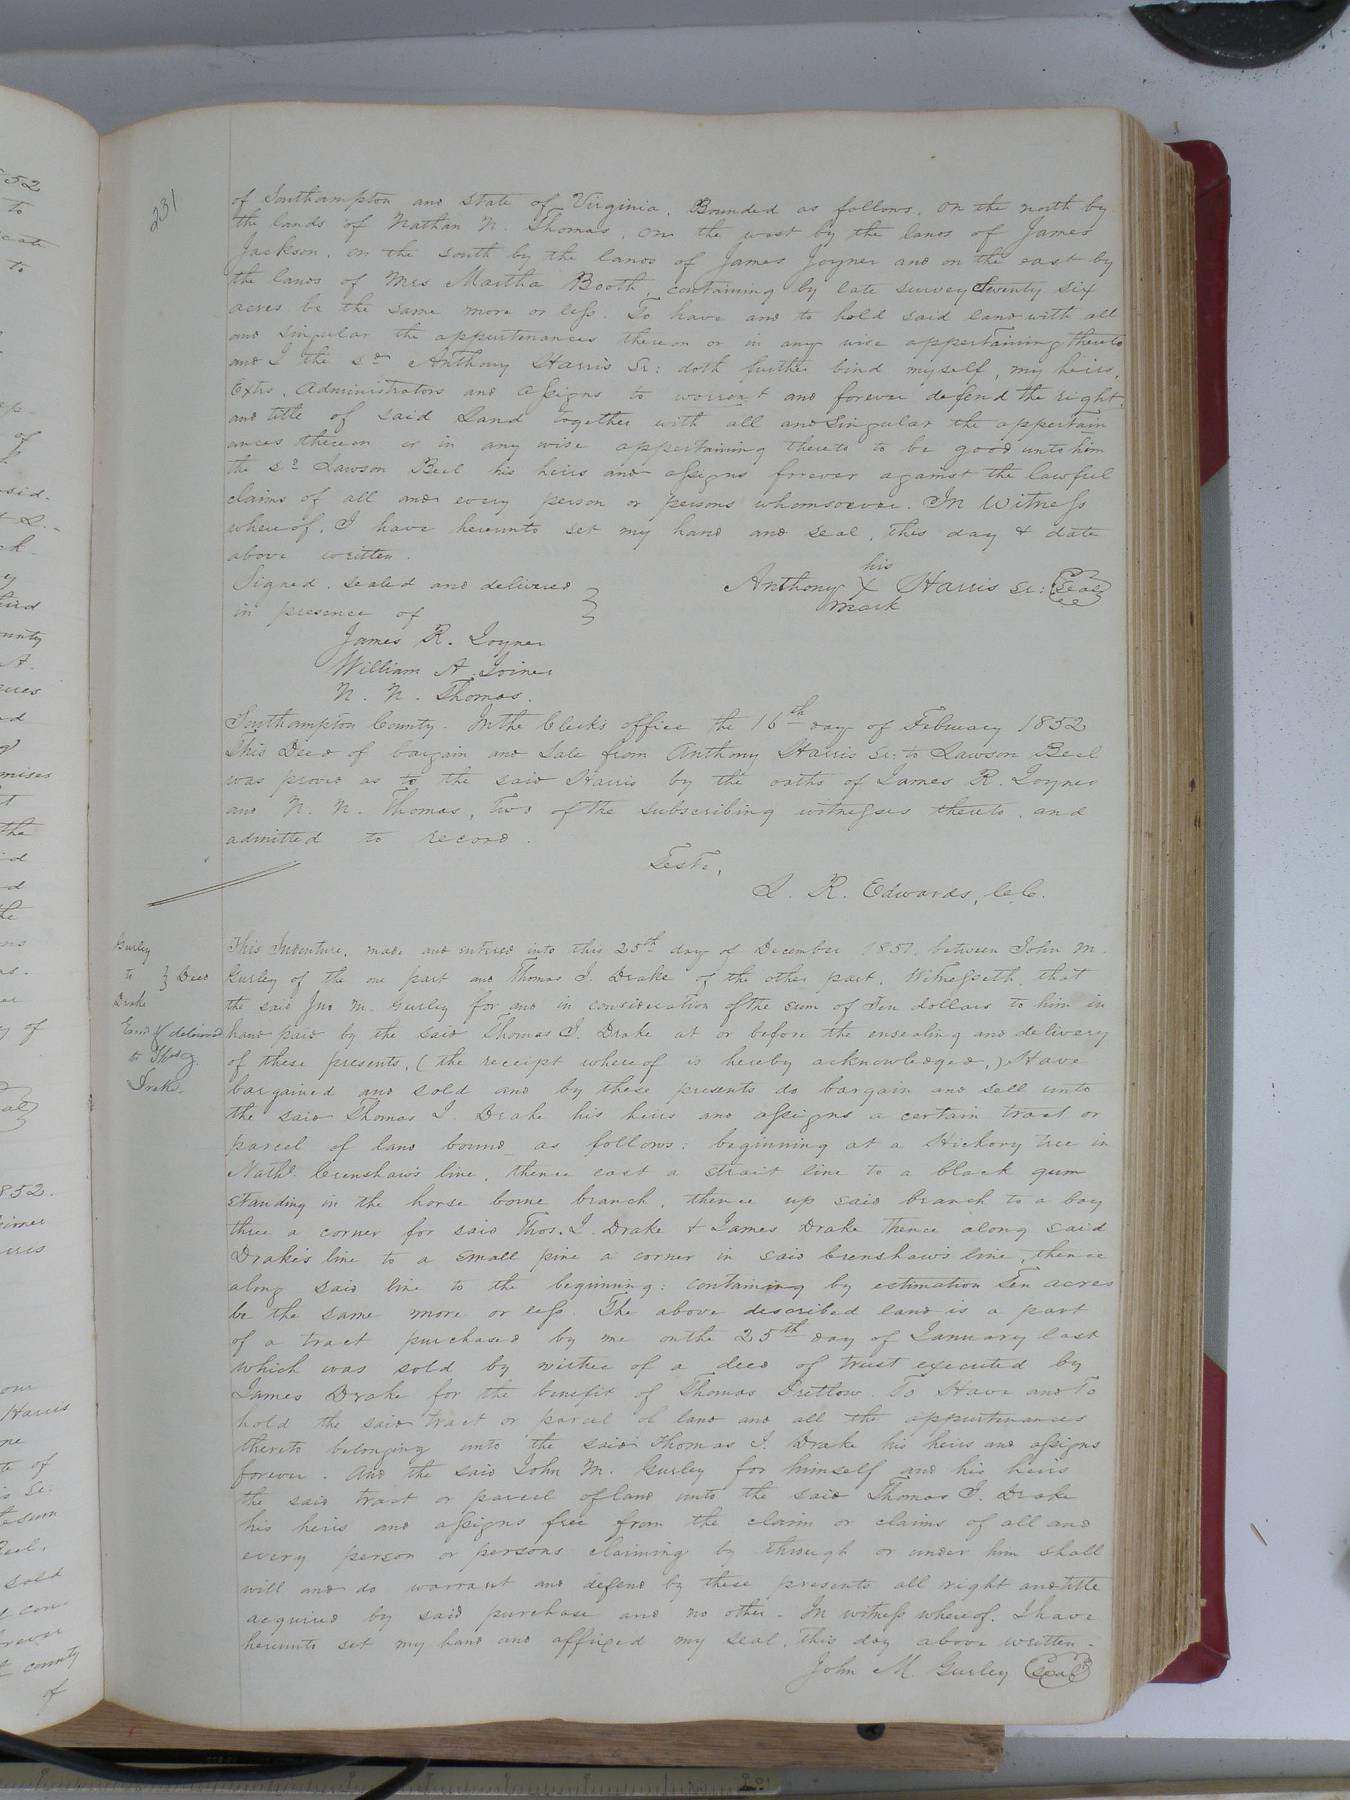 231
of Southampton and State of Virginia. Bounded as follows. On the north by
the lands of Nathan N. Thomas, on the west by the lands of James
Jackson, on the south by the lands of James Joyner and on the east by
the lands of Mrs Martha Booth, containing by late survey Seventy six
acres be the same more or less. To have and to hold said land with all
and singular the appurtenances thereon or in any wise appertaining thereto
and I the sd Anthony Harris Sr: doth further bind myself, my heirs,
Extrs, Administrators and assigns to warrant and forever defend the right
and title of said Land together with all and Singular the appertain
ances thereon or in any wise appertaining thereto to be good unto him
the sd Lawson Beel his heirs and assigns forever against the lawful
claims of all and every person or persons whomsoever. In Witness
whereof, I have hereunto set my hand and seal, this day & date
above written.
Signed, sealed and delivered
in presence of
his
Anthony X Harris Sr: Seal
mark
James R. Joyner
William A. Joiner
N. N. Thomas.
Southampton County. In the Clerk's office the 16th day of February 1852
This Deed of bargain and Sale from Anthony Harris Sr: to Lawson Beel
was proved as to the said Harris by the oaths of James R. Joyner
and N. N. Thomas, two of the subscribing witnesses thereto, and
admitted to record.
Teste,
L. R. Edwards, C.C.
Gurley
to } Deed
Drake
Exmd & delivered
to Thos J.
Drake
This Indenture, made and entered into this 25th day of December 1851, between John M.
Gurley of the one part and Thomas J. Drake of the other part, Witnesseth, that
the said Jno M. Gurley for and in consideration of the sum of Ten dollars to him in
hand paid by the said Thomas J. Drake at or before the ensealing and delivery
of these presents, (the receipt whereof is hereby acknowledged,) Have
bargained and sold and by these presents do bargain and sell unto
the said Thomas J. Drake his heirs and assigns a certain tract or
parcel of land bound as follows: beginning at a Hickory tree in
Nathl Crenshaw's line, thence east a strait line to a black gum
standing in the horse bone branch, thence up said branch to a bay
three a corner for said Thos. J. Drake & James Drake thence along said
Drake's line to a small pine a corner in said Crenshaw's line, thence
along said line to the beginning: containing by estimation Ten acres
be the same more or less. The above described land is a part
of a tract purchased by me on the 25th day of January last
which was sold by virtue of a deed of trust executed by
James Drake for the benefit of Thomas Pretlow. To Have and To
hold the said tract or parcel of land and all the appurtenances
thereto belonging unto the said Thomas J. Drake his heirs and assigns
forever. And the said John M. Gurley for himself and his heirs
the said tract or parcel of land unto the said Thomas J. Drake
his heirs and assigns free from the claim or claims of all and
every person or persons claiming by through or under him shall
will and do warrant and defend by these presents all right and title
acquired by said purchase and no other. In witness whereof, I have
hereunto set my hand and affixed my seal, this day above written.
John M. Gurley Seal